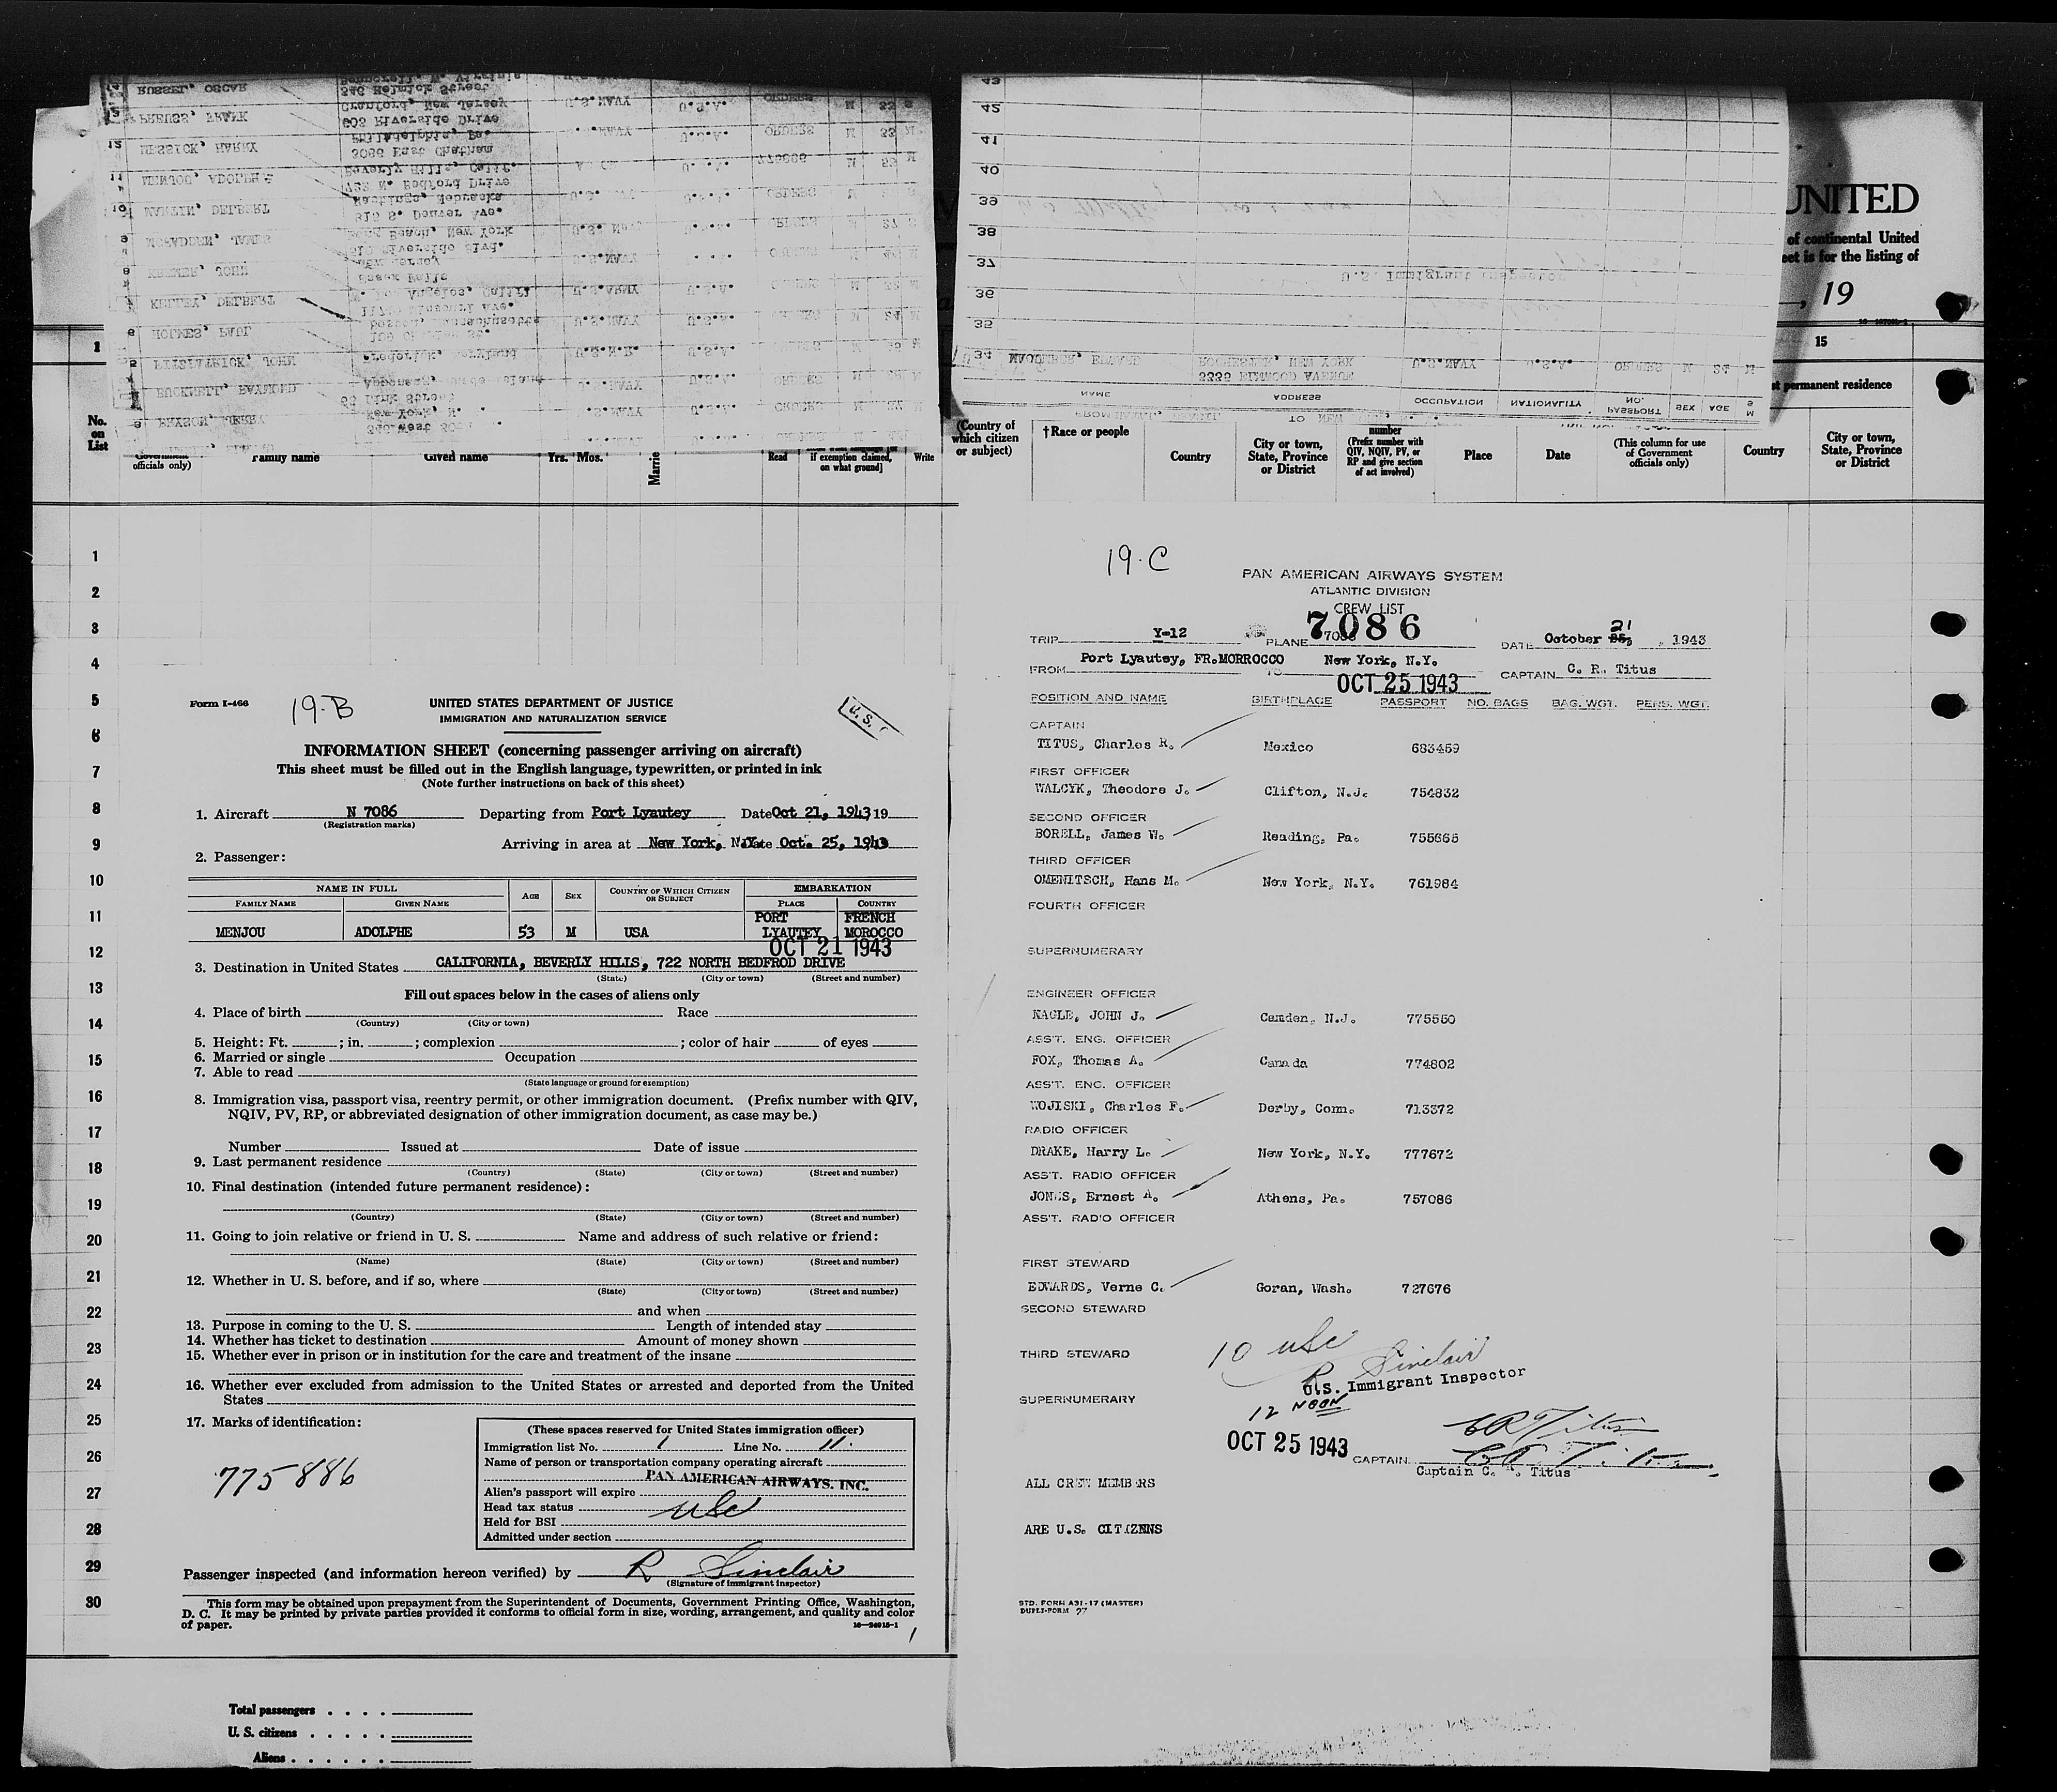 UNITED
of continental United
eet is for the listing of
, 19
15
t permanent residence
1
No.
on
List
officials only)
Family name
Given name
Yrs. Mos.
Read
if exemption claimed,
on what ground]
Write
(Country of
which citizen
or subject)
†Race or people
Country
City or town,
State, Province
or District
number
(Prefix number with
QIV, NQIV, PV, or
RP and give section
of act involved)
Place
Date
(This column for use
of Government
officials only)
Country
City or town,
State, Province
or District
RUSSEL, OSCAR
546 Helmick Street
PREUSS, FRANK
603 Riverside Drive
Cranford, New Jersey
U.S.NAVY
U.S.A.
ORDERS
M
12
MESSICK, HARRY
3086 East Chatham
Philadelphia, Pa.
11
MENJOU, ADOLPHE
722 N. Bedford Drive
Beverly Hills, Calif.
10
MARTIN, DELBERT
515 S. Denver Ave.
Hastings, Nebraska
9
MCFADDEN, JAMES
Long Beach, New York
8
KREMER, JOHN
7
KELLEY, DELBERT
U.S.ARMY
U.S.A.
6
HOLMES, PAUL
Boston, Massachusetts
U.S.NAVY
U.S.A.
5
FITZPATRICK, JOHN
Frederick, Maryland
U.S.N.R.
U.S.A.
BUCKNELL, RAYMOND
BEYSON, JERRY
43
42
41
40
39
38
37
U.S. Immigrant Inspector
36
35
34
MACOMBER, EDWARD
5335 ELMWOOD AVENUE
ROCHESTER, NEW YORK
U.S.NAVY
U.S.A.
ORDERS
M
24
M
NAME
ADDRESS
OCCUPATION
NATIONALITY
PASSPORT
NO.
SEX
AGE
1
2
3
4
5
6
7
8
9
10
11
12
13
14
15
16
17
18
19
20
21
22
23
24
25
26
27
28
29
30
Form I-466
19-B
UNITED STATES DEPARTMENT OF JUSTICE
IMMIGRATION AND NATURALIZATION SERVICE
U.S.
INFORMATION SHEET (concerning passenger arriving on aircraft)
This sheet must be filled out in the English language, typewritten, or printed in ink
(Note further instructions on back of this sheet)
1. Aircraft N 7086 Departing from Port Lyautey Date Oct 21, 1943 19
(Registration marks)
Arriving in area at New York, N.Y. Date Oct. 25, 1943
2. Passenger:
NAME IN FULL
AGE
SEX
COUNTRY OF WHICH CITIZEN
OR SUBJECT
EMBARKATION
FAMILY NAME
GIVEN NAME
PLACE
COUNTRY
MENJOU
ADOLPHE
53
M
USA
PORT
LYAUTEY
FRENCH
MOROCCO
OCT 21 1943
3. Destination in United States CALIFORNIA, BEVERLY HILLS, 722 NORTH BEDFROD DRIVE
(State) (City or town) (Street and number)
Fill out spaces below in the cases of aliens only
4. Place of birth Race
(Country) (City or town)
5. Height: Ft. ; in. ; complexion ; color of hair of eyes
6. Married or single Occupation
7. Able to read
(State language or ground for exemption)
8. Immigration visa, passport visa, reentry permit, or other immigration document. (Prefix number with QIV,
NQIV, PV, RP, or abbreviated designation of other immigration document, as case may be.)
Number Issued at Date of issue
9. Last permanent residence
(Country) (State) (City or town) (Street and number)
10. Final destination (intended future permanent residence):
(Country) (State) (City or town) (Street and number)
11. Going to join relative or friend in U. S. Name and address of such relative or friend:
(Name) (State) (City or town) (Street and number)
12. Whether in U. S. before, and if so, where
(State) (City or town) (Street and number)
and when
13. Purpose in coming to the U. S. Length of intended stay
14. Whether has ticket to destination Amount of money shown
15. Whether ever in prison or in institution for the care and treatment of the insane
16. Whether ever excluded from admission to the United States or arrested and deported from the United
States
17. Marks of identification:
775886
(These spaces reserved for United States immigration officer)
Immigration list No. 1 Line No. 11.
Name of person or transportation company operating aircraft
PAN AMERICAN AIRWAYS, INC.
Alien's passport will expire
Head tax status usc
Held for BSI
Admitted under section
Passenger inspected (and information hereon verified) by R Sinclair
(Signature of immigrant inspector)
This form may be obtained upon prepayment from the Superintendent of Documents, Government Printing Office, Washington,
D. C. It may be printed by private parties provided it conforms to official form in size, wording, arrangement, and quality and color
of paper.
16-24915-1
Total passengers
U. S. citizens
Aliens
19-C
PAN AMERICAN AIRWAYS SYSTEM
ATLANTIC DIVISION
CREW LIST
TRIP Y-12 PLANE 7086 DATE October 25, 21 , 1943
FROM Port Lyautey, FR.MORROCCO TO New York, N.Y. CAPTAIN C. R. Titus
OCT 25 1943
POSITION AND NAME BIRTHPLACE PASSPORT NO. BAGS BAG. WGT. PERS. WGT.
CAPTAIN
TITUS, Charles R. Mexico 683459
FIRST OFFICER
WALCYK, Theodore J. Clifton, N.J. 754832
SECOND OFFICER
BORELL, James W. Reading, Pa. 755665
THIRD OFFICER
OMENITSCH, Hans M. New York, N.Y. 761984
FOURTH OFFICER
SUPERNUMERARY
ENGINEER OFFICER
NAGLE, JOHN J. Camden, N.J. 775550
ASS'T. ENG. OFFICER
FOX, Thomas A. Canada 774802
ASS'T. ENG. OFFICER
WOJISKI, Charles F. Derby, Conn. 713372
RADIO OFFICER
DRAKE, Harry L. New York, N.Y. 777672
ASS'T. RADIO OFFICER
JONES, Ernest A. Athens, Pa. 757086
ASS'T. RADIO OFFICER
FIRST STEWARD
EDWARDS, Verne C. Goran, Wash. 727676
SECOND STEWARD
10 usc
THIRD STEWARD
R Sinclair
U.S. Immigrant Inspector
SUPERNUMERARY
12 NOON
OCT 25 1943
CR Titus
CAPTAIN C R Titus
Captain C. R. Titus
ALL CREW MEMBERS
ARE U.S. CITIZENS
STD. FORM A31-17 (MASTER)
DUPLI-FORM 27